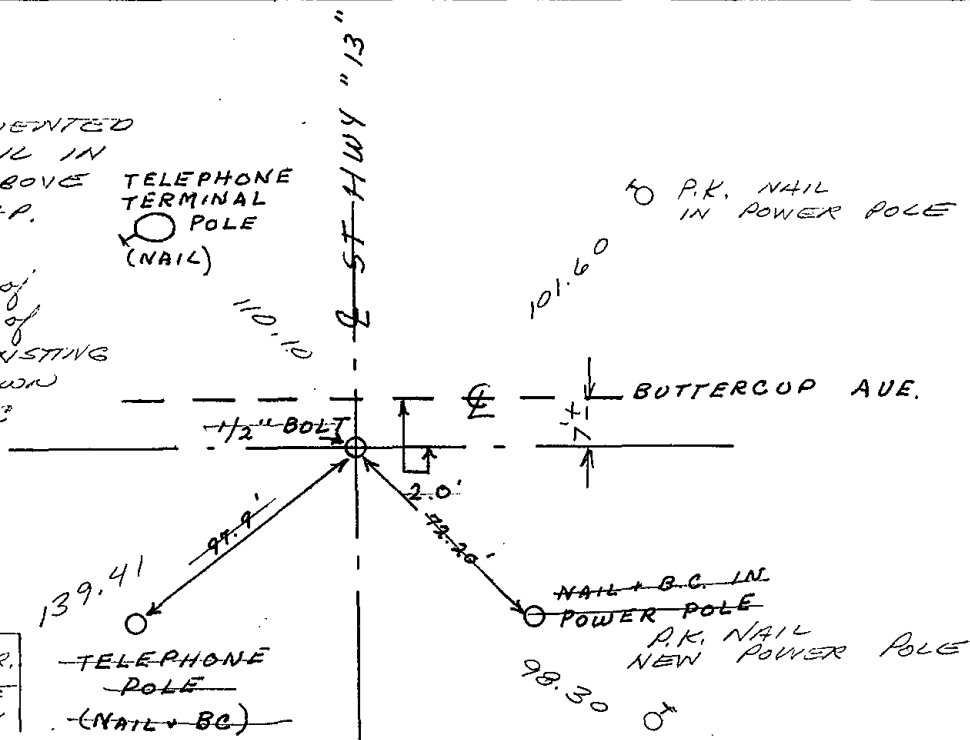 ℄ ST HWY "13"
IN
TELEPHONE
TERMINAL
POLE
(NAIL)
P.K. NAIL
IN POWER POLE
of
of
110.10
101.60
℄ BUTTERCUP AVE.
7'±
1/2" BOLT
2.0'
97.9'
139.41
NAIL + B.C. IN
POWER POLE
P.K. NAIL
NEW POWER POLE
98.30
TELEPHONE
POLE
(NAIL + BC)